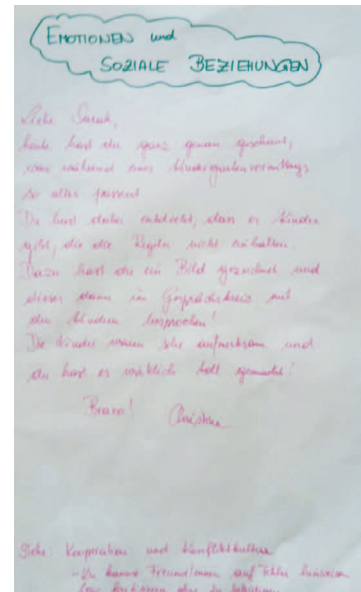 EMOTIONEN und
SOZIALE BEZIEHUNGEN
Liebe Sarah,
heute hast du ganz genau geschaut,
was während eines Kindergartenvormittags
so alles passiert.
Du hast dabei entdeckt, dass es Kinder
gibt, die die Regeln nicht einhalten.
Dazu hast du ein Bild gezeichnet und
dieses dann im Gesprächskreis mit
den Kindern besprochen!
Die Kinder waren sehr aufmerksam und
du hast es wirklich toll gemacht!
Bravo! Christina
Siehe: Kooperation und Konfliktkultur
- Du kannst FreundInnen auf Fehler hinweisen